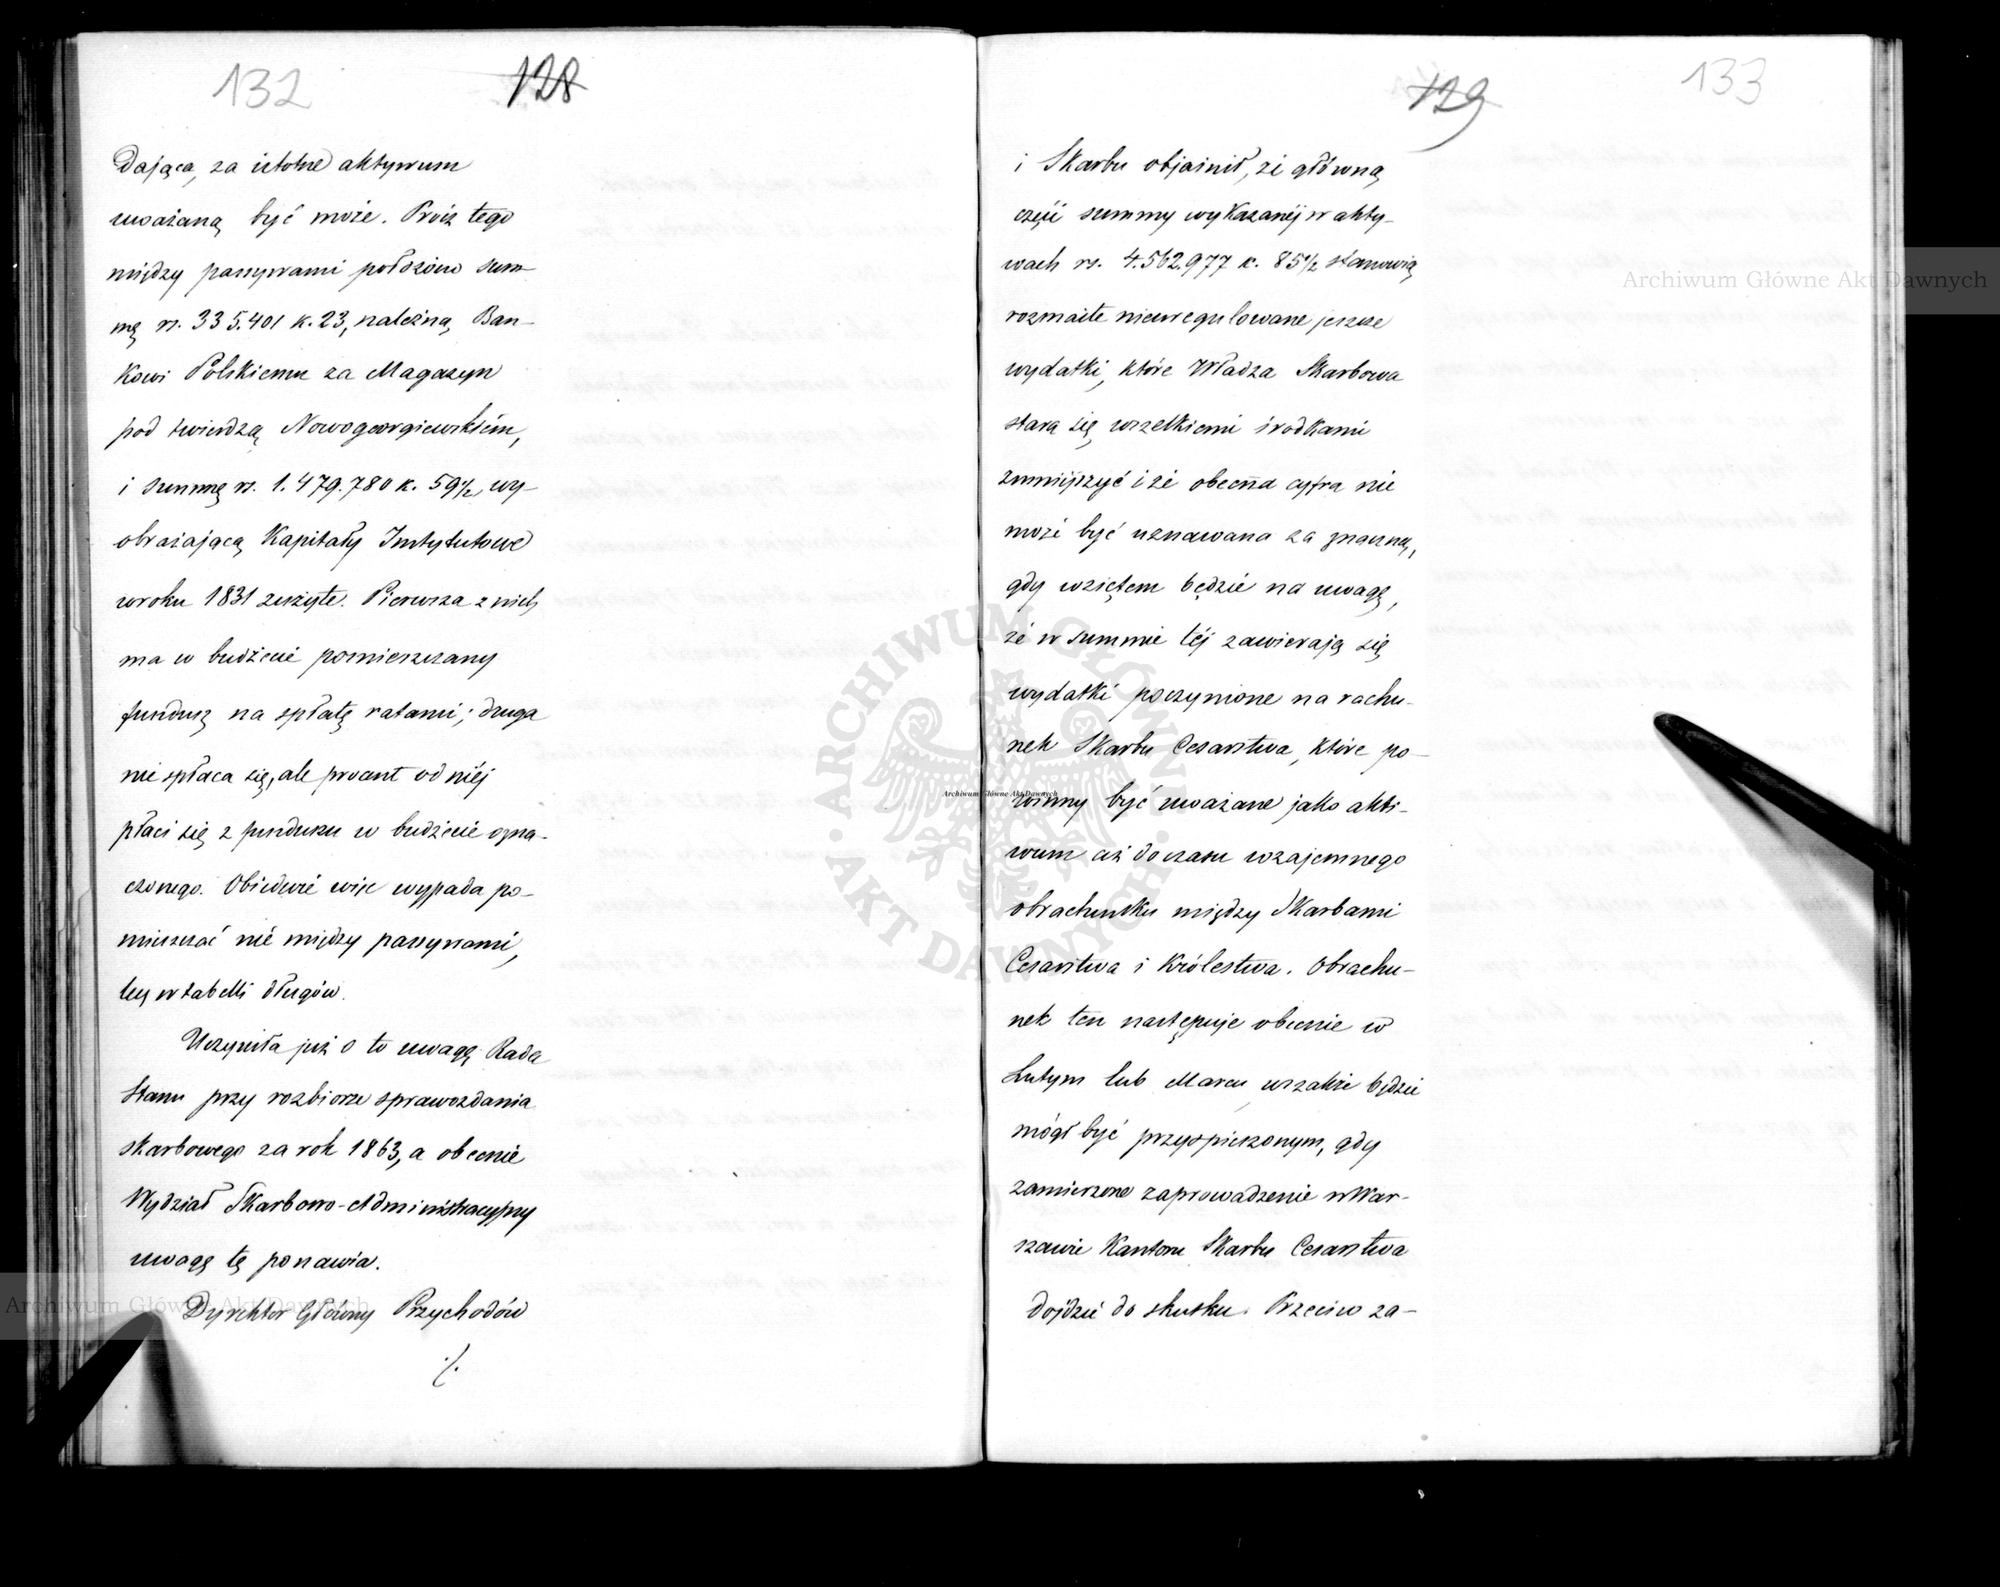 132
128
dającą, za istotne aktywum
uważaną być może. Prócz tego
między passywami położono sum-
mę rs. 335.401 k. 23, należną Ban-
kowi Polskiemu za Magazyn
pod twierdzą Nowogeorgiewskiem,
i summę rs. 1.479.780 k. 59½, wy-
obrażającą Kapitały Instytutowe
w roku 1831 zużyte. Pierwsza z nich
ma w budżecie pomieszczany
fundusz na spłatę ratami; druga
nie spłaca się, ale procent od niéj
płaci się z funduszu w budżecie ozna-
czonego. Obiedwie więc wypada po-
mieszczać nie między passywami,
lecz w tabelli długów.
Uczyniła już o to uwagę Rada
Stanu przy rozbiorze sprawozdania
skarbowego za rok 1863, a obecnie
Wydział Skarbowo-Administracyjny
uwagę tę ponawia.
Dyrektor Główny Przychodów
./.
129
133
i Skarbu objaśnił, że główną
część summy wykazanéj w akty-
wach rs. 4.562.977 k. 85½ stanowią
rozmaite nieuregulowane jeszcze
wydatki, które Władza Skarbowa
stara się wszelkiemi środkami
zmniejszyć i że obecna cyfra nie
może być uznawana za znaczną,
gdy wziętem będzie na uwagę,
że w summie téj zawierają się
wydatki poczynione na rachu-
nek Skarbu Cesarstwa, które po-
winny być uważane jako akty-
wum aż do czasu wzajemnego
obrachunku między Skarbami
Cesarstwa i Królestwa. Obrachu-
nek ten następuje obecnie w
Lutym lub Marcu, wszakże będzie
mógł być przyspieszonym, gdy
zamierzone zaprowadzenie w War-
szawie Kantoru Skarbu Cesarstwa
dojdzie do skutku. Przeciw za-
Archiwum Główne Akt Dawnych
Archiwum Główne Akt Dawnych
Archiwum Główne Akt Dawnych
· ARCHIWUM GŁÓWNE · AKT DAWNYCH ·